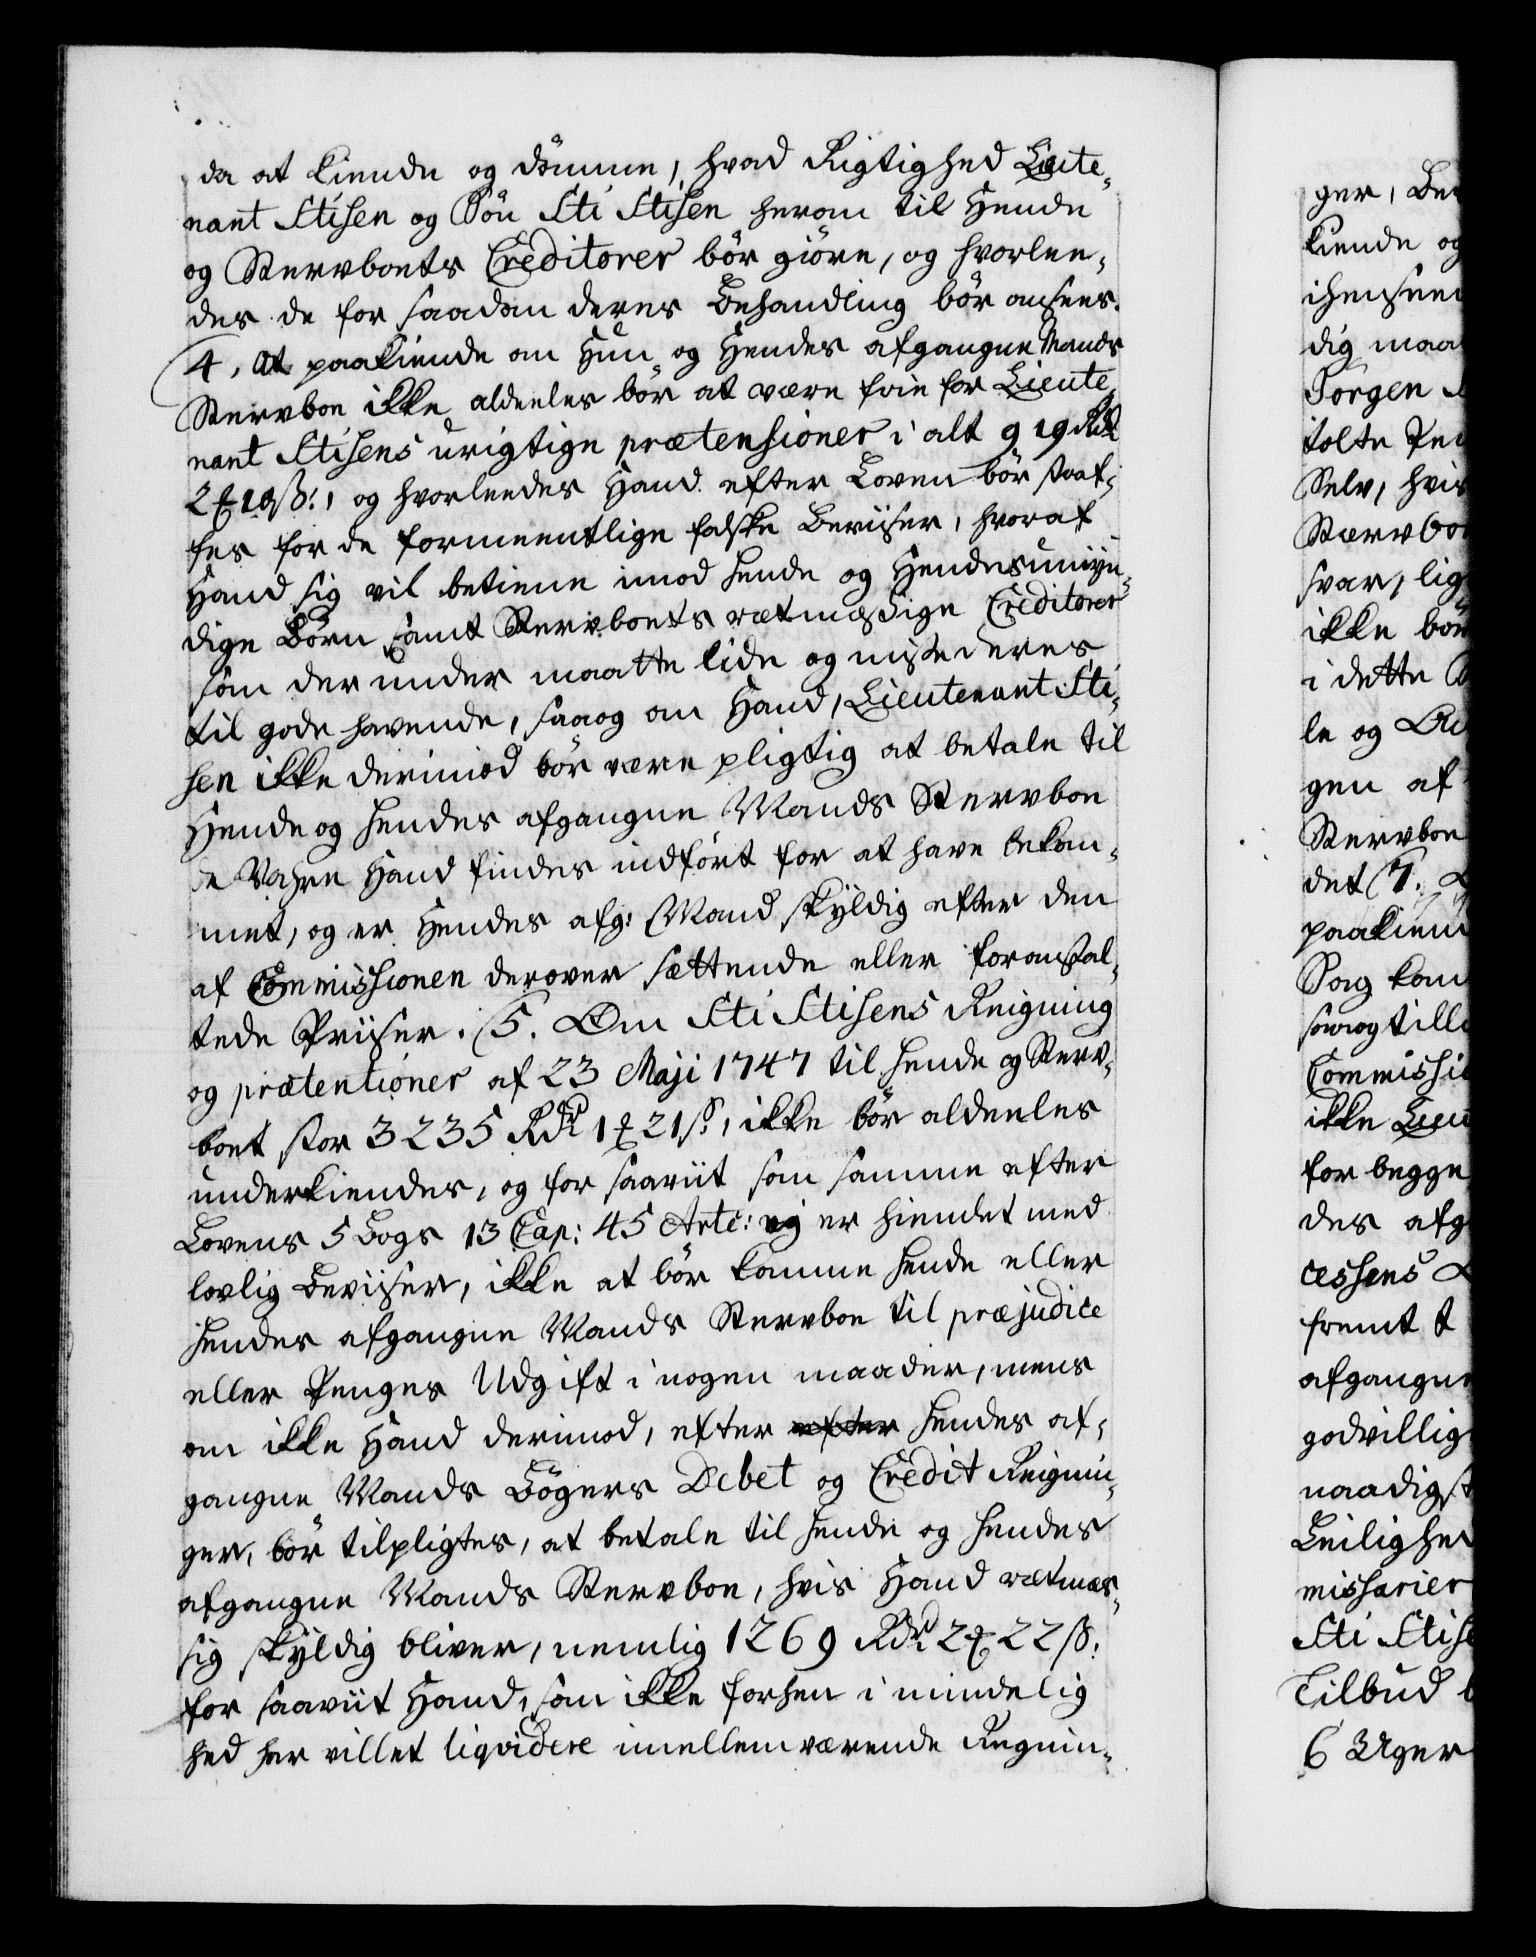 da at kiende og dömme, hvad Rigtighed Lieute-
nant Stisen og Sön Sti Stisen herom til Hende
og Stervboets Creditorer bör giöre, og hvorlee-
des de for saadan deres Behandling bör ansees.
4, At paakiende om Hun og Hendes afgangne Mands
Stervboe ikke aldeeles bör at være frie for Lieute-
nant Stisens urigtige prætensioner i alt 919 Rdr
2 ß:, og hvorleedes Hand efter Loven bör straf-
fes for de formeentlige falske Beviiser, hvoraf
Hand sig vil betiene imod hende og Hendes umÿn-
dige Börn samt Stervboets rætmæssige Creditorer
som der under maatte lide og miste deres
til gode havende, saa og om Hand, Lieutenant Sti-
sen ikke derimod bör være pligtig at betale til
Hende og hendes afgangne Mands Stervboe
de Vahre Hand findes indfört for at have bekom-
met, og er Hendes afg: Mand skÿldig efter den
af Commissionen derover sættende eller foranstal-
tede Priiser. 5. Om Sti Stisens Reigning
og prætentioner af 23 Maji 1747 til hende og Sterv-
boet stor 3235 Rdr 1 21 ß, ikke bör aldeeles
underkiendes, og for saaviit som samme efter
Lovens 5 Bogs 13 Cap: 45 Artc: ej er hiemlet med
lovlig Beviiser, ikke at bör komme hende eller
hendes afgangne Mands Stervboe til præjudice
eller Penges Udgift i nogen maader, mens
om ikke Hand derimod, efter efter hendes af-
gangne Mands Bögers Debet og Credit Reignin-
ger, bör tilpligtes, at betale til hende og hendes
afgangne Mands Stervboe, hvis Hand rætmæs-
sig skÿldig bliver, nemlig 1269 Rdr 2 22 ß.
for saaviit Hand, som ikke forhen i mindelig
hed har villet liqvidere imellemværende Regnin-
ger,
kiende og
dig maa
Jörgen
Selv, hvis
svar, lig
ikke bör
i dette
le og
gen af
Stervboe
det 7.
paakiende
Sag kom
saa og
ikke
for begge
des afg
cessens
fremt
afgangne
godvillig
naadigst
Leilighed
missarier
Sti Stise
Tilbud
6 Uger